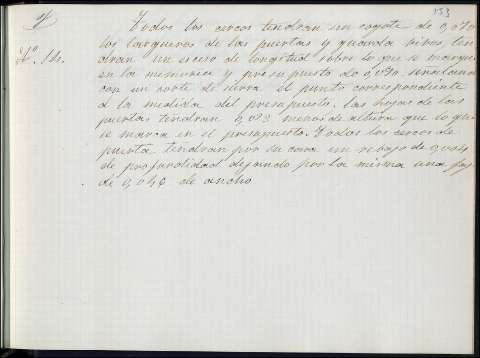 153
Todos los cercos tendran un cogote de 0,070
los largueros de las puertas y guarda vivos, ten
dran un esceso de longitud sobre lo que se marque
en la memoria y presupuesto de 0,030 señalando
con un corte de sierra el punto correspondiente
á la medida del presupuesto. Las hojas de las
puertas tendran 0,003 menos de altura que lo que
se marca en el presupuesto. Todos los cercos de
puerta tendran por su cara un rebajo de 0,004
de profundidad dejando por la misma una faj
de 0,046 de ancho